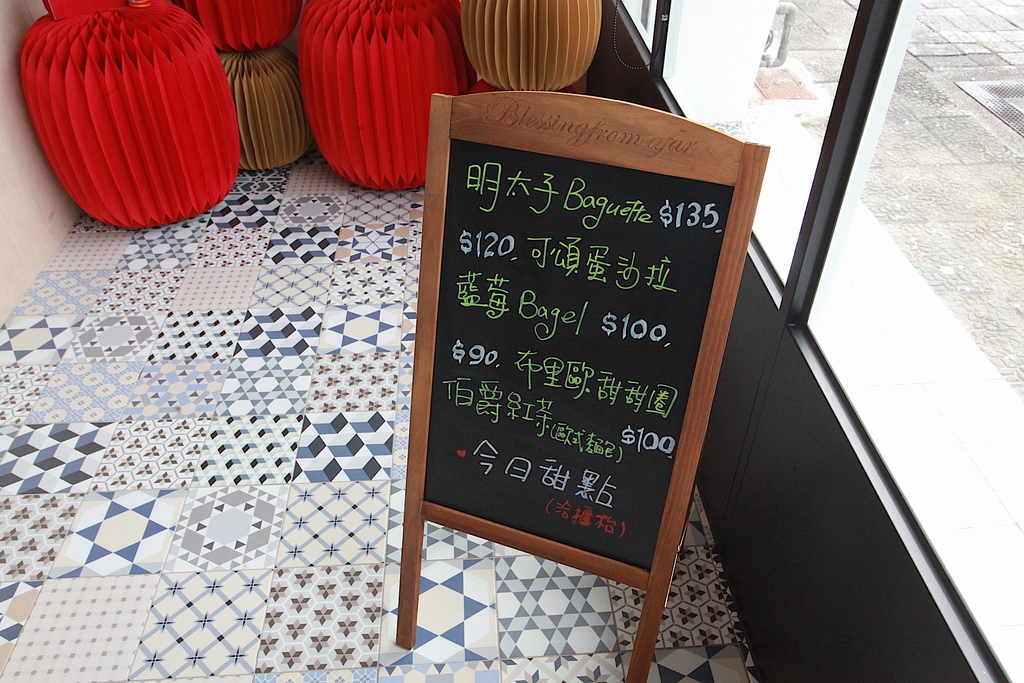 Blessing from afar
明太子 Baguette $135.
$120. 可頌蛋沙拉
藍莓 Bagel $100.
$90. 布里歐甜甜圈
伯爵紅茶(歐式麵包) $100
今日甜點
(洽櫃枱)